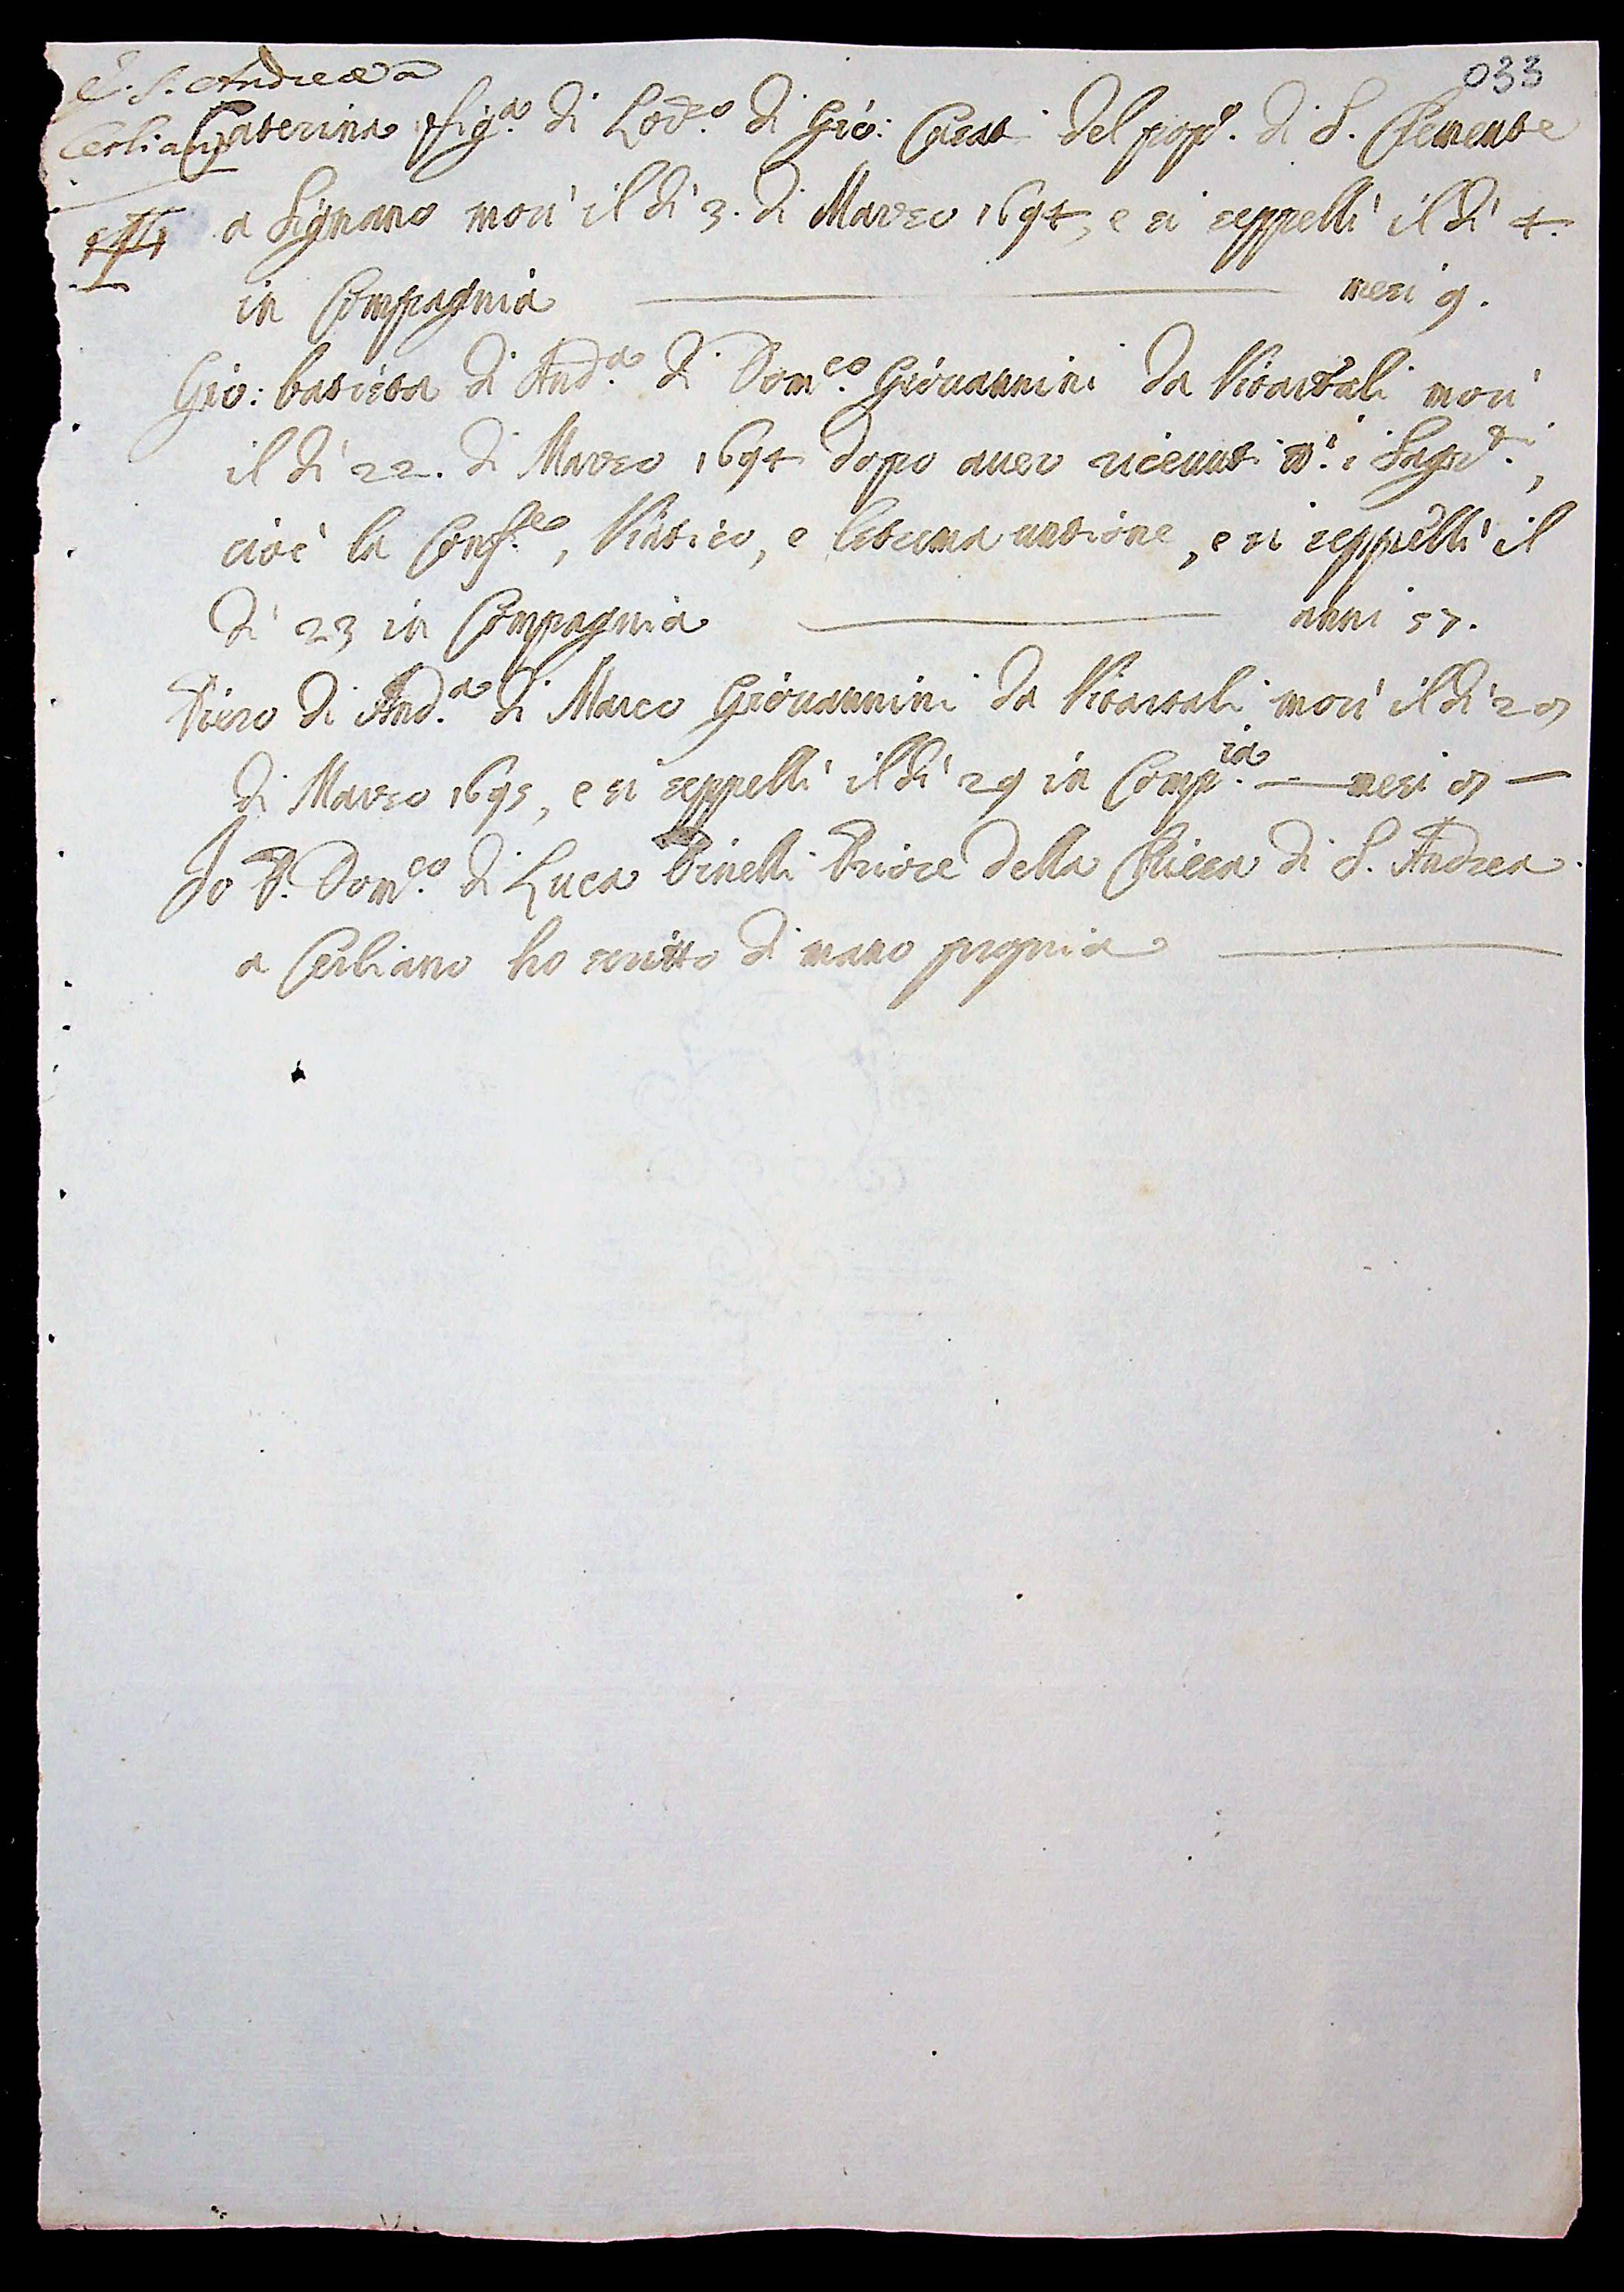 033
S. Andrea a
Cerliano
Caterina fig.a di Lod.o di Gio: Casati del pop.o di S. Clemente
a Signano morì il dì 3. di Marzo 1694, e si seppellì il dì 4.
in Compagnia mesi 9.
Gio: batista di And.a di Dom.co Giouannini da Vitartali morì
il dì 22. di Marzo 1694 dopo auer riceuuti i Sagr.ti,
cioè la Conf.e, Viatico, e lestrema untione, e si seppellì il
dì 23 in Compagnia anni 57.
Piero di And.a di Marco Giouannini da Vitartali morì il dì 28
di Marzo 1695, e si seppellì il dì 29 in Comp.ia mesi 8
Io P. Dom.co di Luca Pinelli Priore della Chiesa di S. Andrea
a Cerliano ho scritto di mano propria